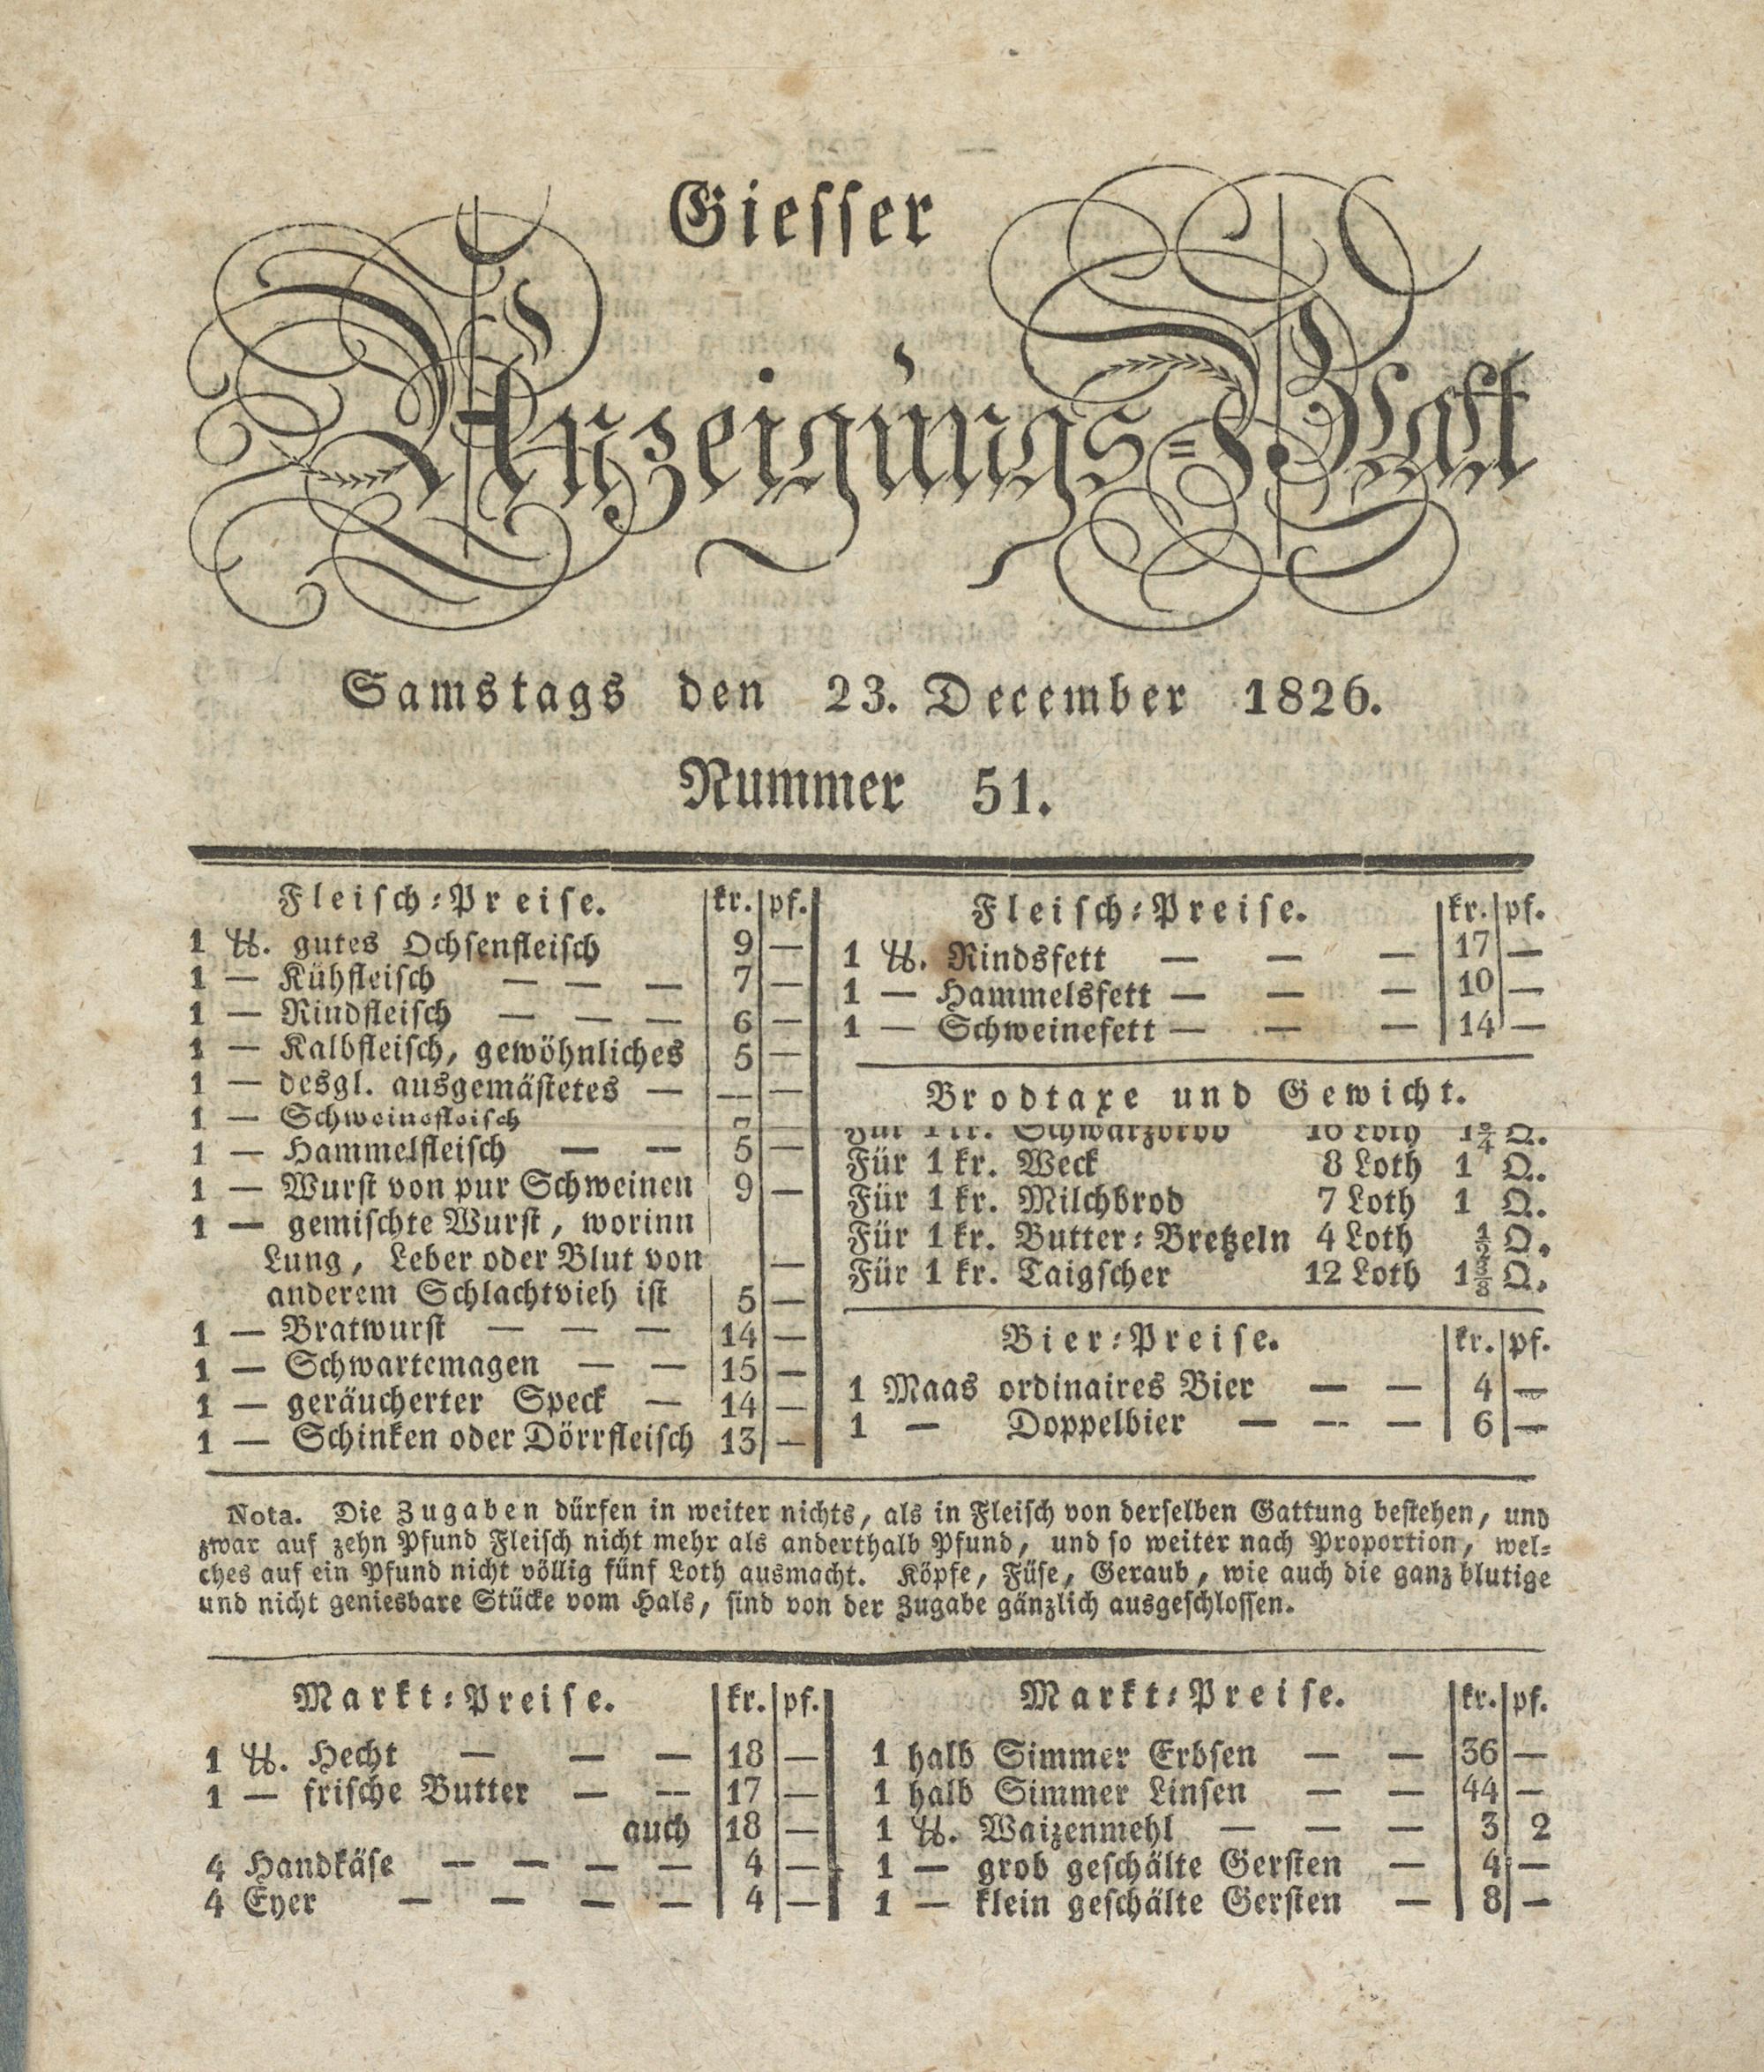 Giesser
Anzeigungs=Blatt
Samstags den 23. December 1826.
Nummer 51.
Fleisch=Preise. kr. pf.
1 ℔. gutes Ochsenfleisch 9 —
1 — Kühfleisch — — — 7 —
1 — Rindfleisch — — — 6 —
1 — Kalbfleisch, gewöhnliches 5 —
1 — desgl. ausgemästetes — — —
1 — Schweinefleisch
1 — Hammelfleisch — — 5 —
1 — Wurst von pur Schweinen 9 —
1 — gemischte Wurst, worinn
Lung, Leber oder Blut von —
anderem Schlachtvieh ist 5 —
1 — Bratwurst — — — 14 —
1 — Schwartemagen — — 15 —
1 — geräucherter Speck — 14 —
1 — Schinken oder Dörrfleisch 13 —
Fleisch=Preise. kr. pf.
1 ℔. Rindsfett — — — 17 —
1 — Hammelsfett — — — 10 —
1 — Schweinefett — — — 14 —
Brodtaxe und Gewicht.
Für 1 kr. Schwarzbrod 16 Loth Q.
Für 1 kr. Weck 8 Loth 1 Q.
Für 1 kr. Milchbrod 7 Loth 1 Q.
Für 1 kr. Butter=Bretzeln 4 Loth ½ Q.
Für 1 kr. Taigscher 12 Loth 1⅜ Q.
Bier=Preise. kr. pf.
1 Maas ordinaires Bier — — 4 —
1 — Doppelbier — — — 6 —
Nota. Die Zugaben dürfen in weiter nichts, als in Fleisch von derselben Gattung bestehen, und
zwar auf zehn Pfund Fleisch nicht mehr als anderthalb Pfund, und so weiter nach Proportion, wel=
ches auf ein Pfund nicht völlig fünf Loth ausmacht. Köpfe, Füse, Geraub, wie auch die ganz blutige
und nicht geniesbare Stücke vom Hals, sind von der Zugabe gänzlich ausgeschlossen.
Markt=Preise. kr. pf.
1 ℔. Hecht — — — 18 —
1 — frische Butter — — 17 —
auch 18 —
4 Handkäse — — — — 4 —
4 Eyer — — — — 4 —
Markt=Preise. kr. pf.
1 halb Simmer Erbsen — — 36 —
1 halb Simmer Linsen — — 44 —
1 ℔. Waizenmehl — — — 3 2
1 — grob geschälte Gersten — 4 —
1 — klein geschälte Gersten — 8 —